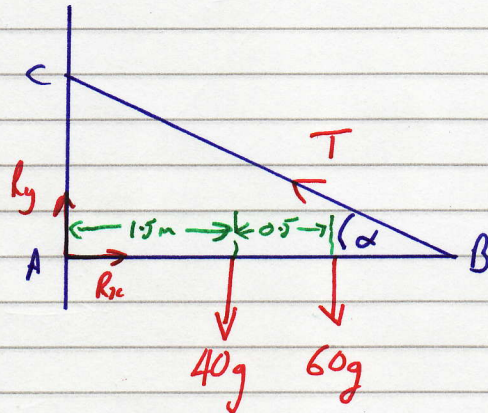 C
T
Ry
1.5m
0.5
α
A
B
Rx
40g
60g